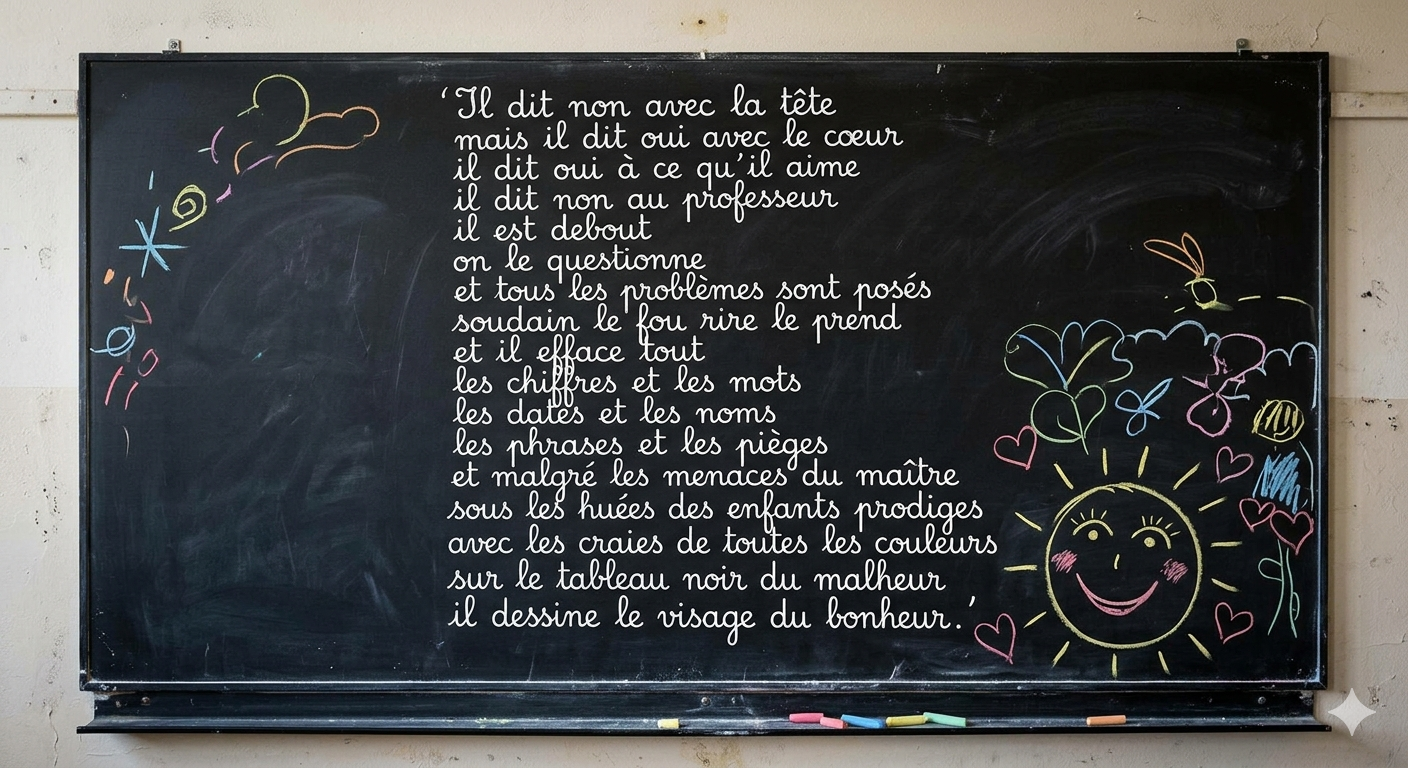 ‘Il dit non avec la tête
mais il dit oui avec le cœur
il dit oui à ce qu’il aime
il dit non au professeur
il est debout
on le questionne
et tous les problèmes sont posés
soudain le fou rire le prend
et il efface tout
les chiffres et les mots
les dates et les noms
les phrases et les pièges
et malgré les menaces du maître
sous les huées des enfants prodiges
avec les craies de toutes les couleurs
sur le tableau noir du malheur
il dessine le visage du bonheur.’